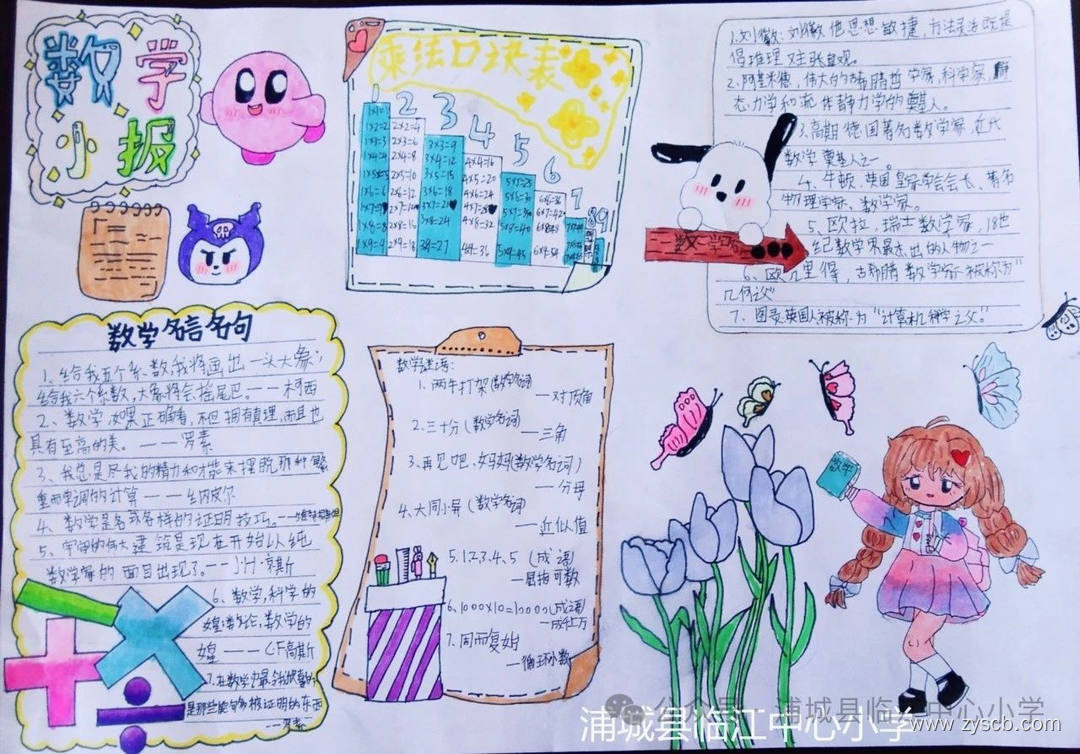 数学
小报
乘法口块表
1 2 3 4 5 6 7 8 9
1×1=1
1×2=2 2×2=4
1×3=3 2×3=6 3×3=9
1×4=4 2×4=8 3×4=12 4×4=16
1×5=5 2×5=10 3×5=15 4×5=20 5×5=25
1×6=6 2×6=12 3×6=18 4×6=24 5×6=30 6×6=36
1×8=8 2×8=16 3×8=24 4×8=32
1×9=9 2×9=18 3×9=27 4×9=36 5×9=45 6×9=54
1.刘徽:刘徽他思想敏捷,方法灵活既提
倡推理 又主张直观。
2.阿基米德,伟大的古希腊哲学家,科学家,静
态力学和流体静力学的奠基人。
3.高斯 德国著名数学家 近代
数学奠基人之一。
4、牛顿、英国皇家学会会长、著名
物理学家、数学家。
5、欧拉,瑞士数学家,18世
纪数学界最杰出的人物之一
6、欧几里得,古希腊数学家 被称为"
几何之父"
7.图灵英国人被称为"计算机科学之父"
数学
数学名言名句
1、给我五个系数,我将画出一头大象;
给我六个系数,大象将会摇尾巴。——柯西
2、数学 如果正确看,不但拥有真理,而且也
具有至高的美。———罗素
3、我总是尽我的精力和才能来摆脱那种繁
重而单调的计算——纳皮尔
4、数学是各式各样的证明技巧。
5、宇宙的伟大建筑是现在开始以纯
数学家的面目出现了。——J·H·京斯
6、数学,科学的
皇后;数论,数学的
皇——C·F高斯
7.在数学中最令我欣喜的
是那些能够被证明的东西
——罗素
数学谜语:
1、两牛打架(数学名词)
—对顶角
2、三十分(数学名词)
—三角
3、再见吧,妈妈(数学名词)
—分母
4、大同小异(数学名词)
—近似值
5.1.2.3.4.5(成语)
—屈指可数
6、1000×10=10000(成语)
—成千上万
7.周而复始
—循环小数
数学
公众号 · 浦城县临江中心小学
浦城县临江中心小学
www.zyscb.com